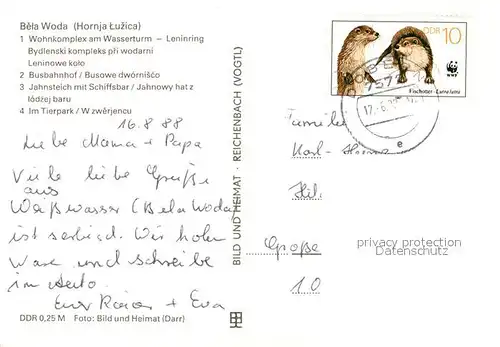 Běla Woda (Hornja Łužica)
1 Wohnkomplex am Wasserturm – Leninring
Bydlenski kompleks při wodarni
Leninowe koło
2 Busbahnhof / Busowe dwórnišćo
3 Jahnsteich mit Schiffsbar / Jahnowy hat z
łódźej baru
4 Im Tierpark / W zwěrjencu
16.8.88
Liebe Mama + Papa
Viele liebe Grüße
aus
Weißwasser (Bela Woda
ist serbisch. Wir holen
Ware und schreibe
im Auto.
Euer + Eva
DDR 0,25 M Foto: Bild und Heimat (Darr)
BILD UND HEIMAT · REICHENBACH (VOGTL)
DDR 10
WWF
Fischotter - Lutra lutra
757
e
Familie
Karl-
Große
10
privacy protection
Datenschutz